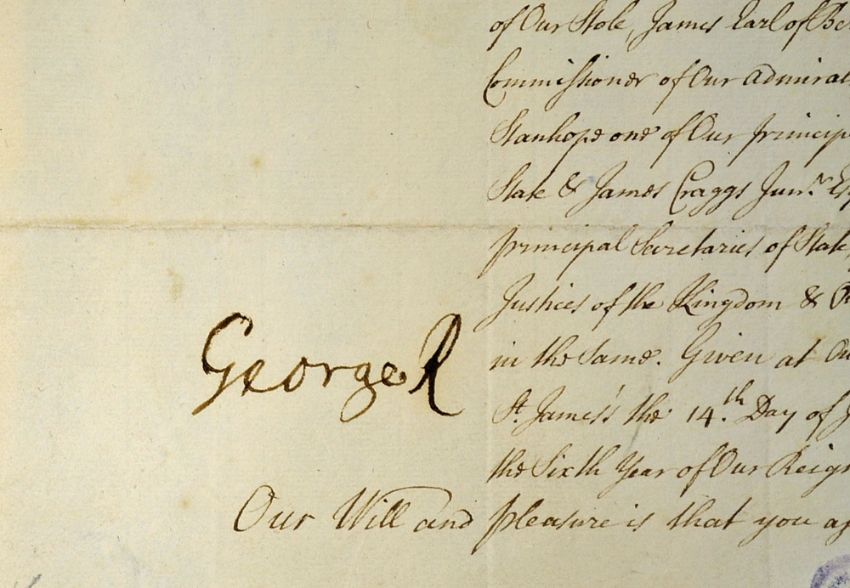 of Our Stole, James Earl of Be
Commissioner of Our Admiral
Stanhope one of Our princip
State & James Craggs Junr. Esq
principal Secretaries of State,
Justices of the Kingdom &
George R
in the Same. Given at Ou
St. James's the 14th. Day of J
the Sixth Year of Our Reign
Our Will and pleasure is that you ap